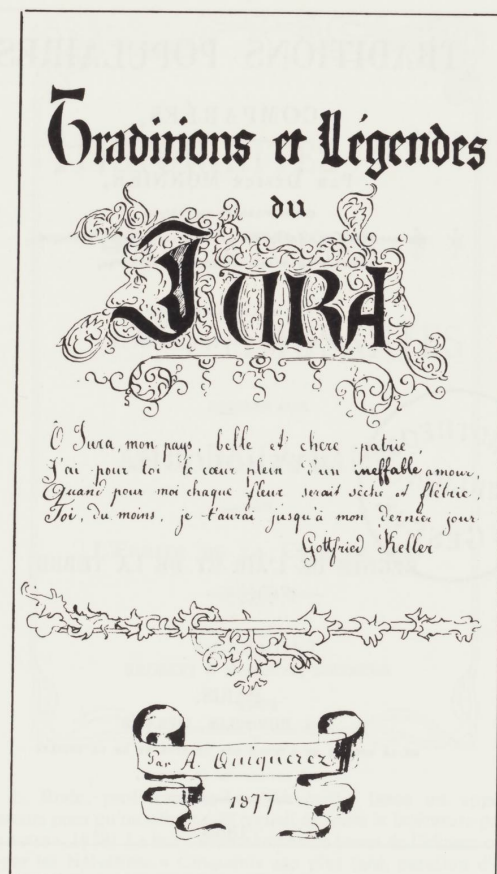 Traditions et Légendes
du
JURA
Ô Jura, mon pays, belle et chere patrie,
J'ai pour toi le cœur plein d'un ineffable amour,
Quand pour moi chaque fleur serait sèche et flêtrie,
Toi, du moins, je t'aurai jusqu'à mon dernier jour
Gottfried Keller
Par A. Quiquerez
1877